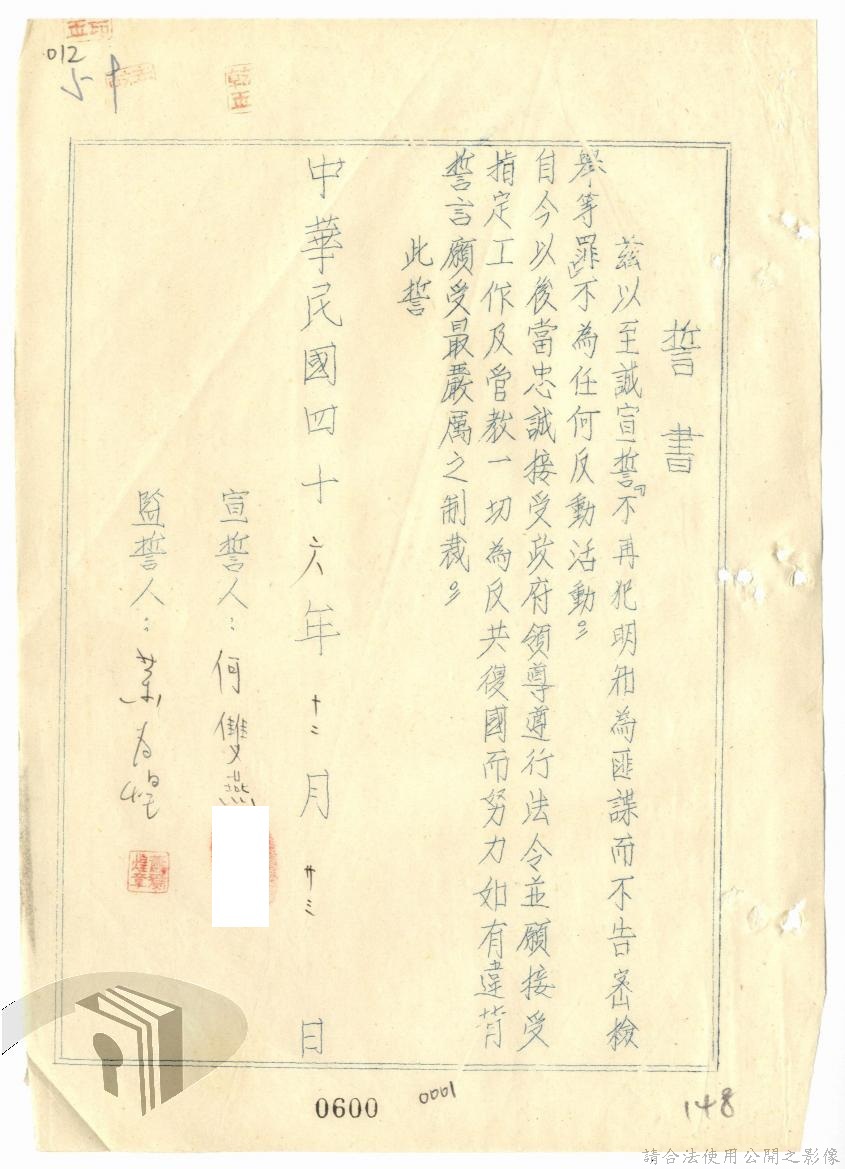 012
誓書
茲以至誠宣誓『不再犯明知為匪諜而不告密檢
舉等罪』不為任何反動活動。
自今以後當忠誠接受政府領導遵行法令並願接受
指定工作及管教一切為反共復國而努力如有違背
誓言願受最嚴厲之制裁。
此誓
中華民國四十六年十二月廿三日
宣誓人：何雙燕
監誓人：葉
0600
0001
148
請合法使用公開之影像